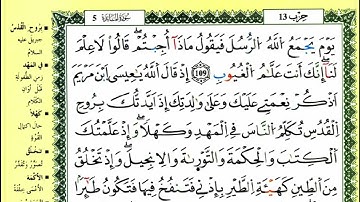 حِزْب 13
سُورَةُ المَائِدَة 5
يَوْمَ يَجْمَعُ اللَّهُ الرُّسُلَ فَيَقُولُ مَاذَا أُجِبْتُمْ قَالُوا لَا عِلْمَ
لَنَا إِنَّكَ أَنتَ عَلَّامُ الْغُيُوبِ 109 إِذْ قَالَ اللَّهُ يَعِيسَى ابْنَ مَرْيَمَ
اذْكُرْ نِعْمَتِي عَلَيْكَ وَعَلَى وَلِدَتِكَ إِذْ أَيَّدتُّكَ بِرُوحِ
الْقُدُسِ تُكَلِّمُ النَّاسَ فِي الْمَهْدِ وَكَهْلًا وَإِذْ عَلَّمْتُكَ
الْكِتَبَ وَالْحِكْمَةَ وَالتَّوْرَيةَ وَالْإِنجِيلَ وَإِذْ تَخْلُقُ
مِنَ الطِّينِ كَهَيْئَةِ الطَّيْرِ بِإِذْنِي فَتَنفُخُ فِيهَا فَتَكُونُ طَيْرًا
بِرُوحِ الْقُدُسِ
جبريل عليه
السلام
في المَهْدِ
زمن الطفولة
قبل أوان
الكلام
كَهْلًا
حال اكتمال
القوة
تَخْلُقُ
تُصَوِّرُ وتُقَدِّرُ
الأكْمَهَ